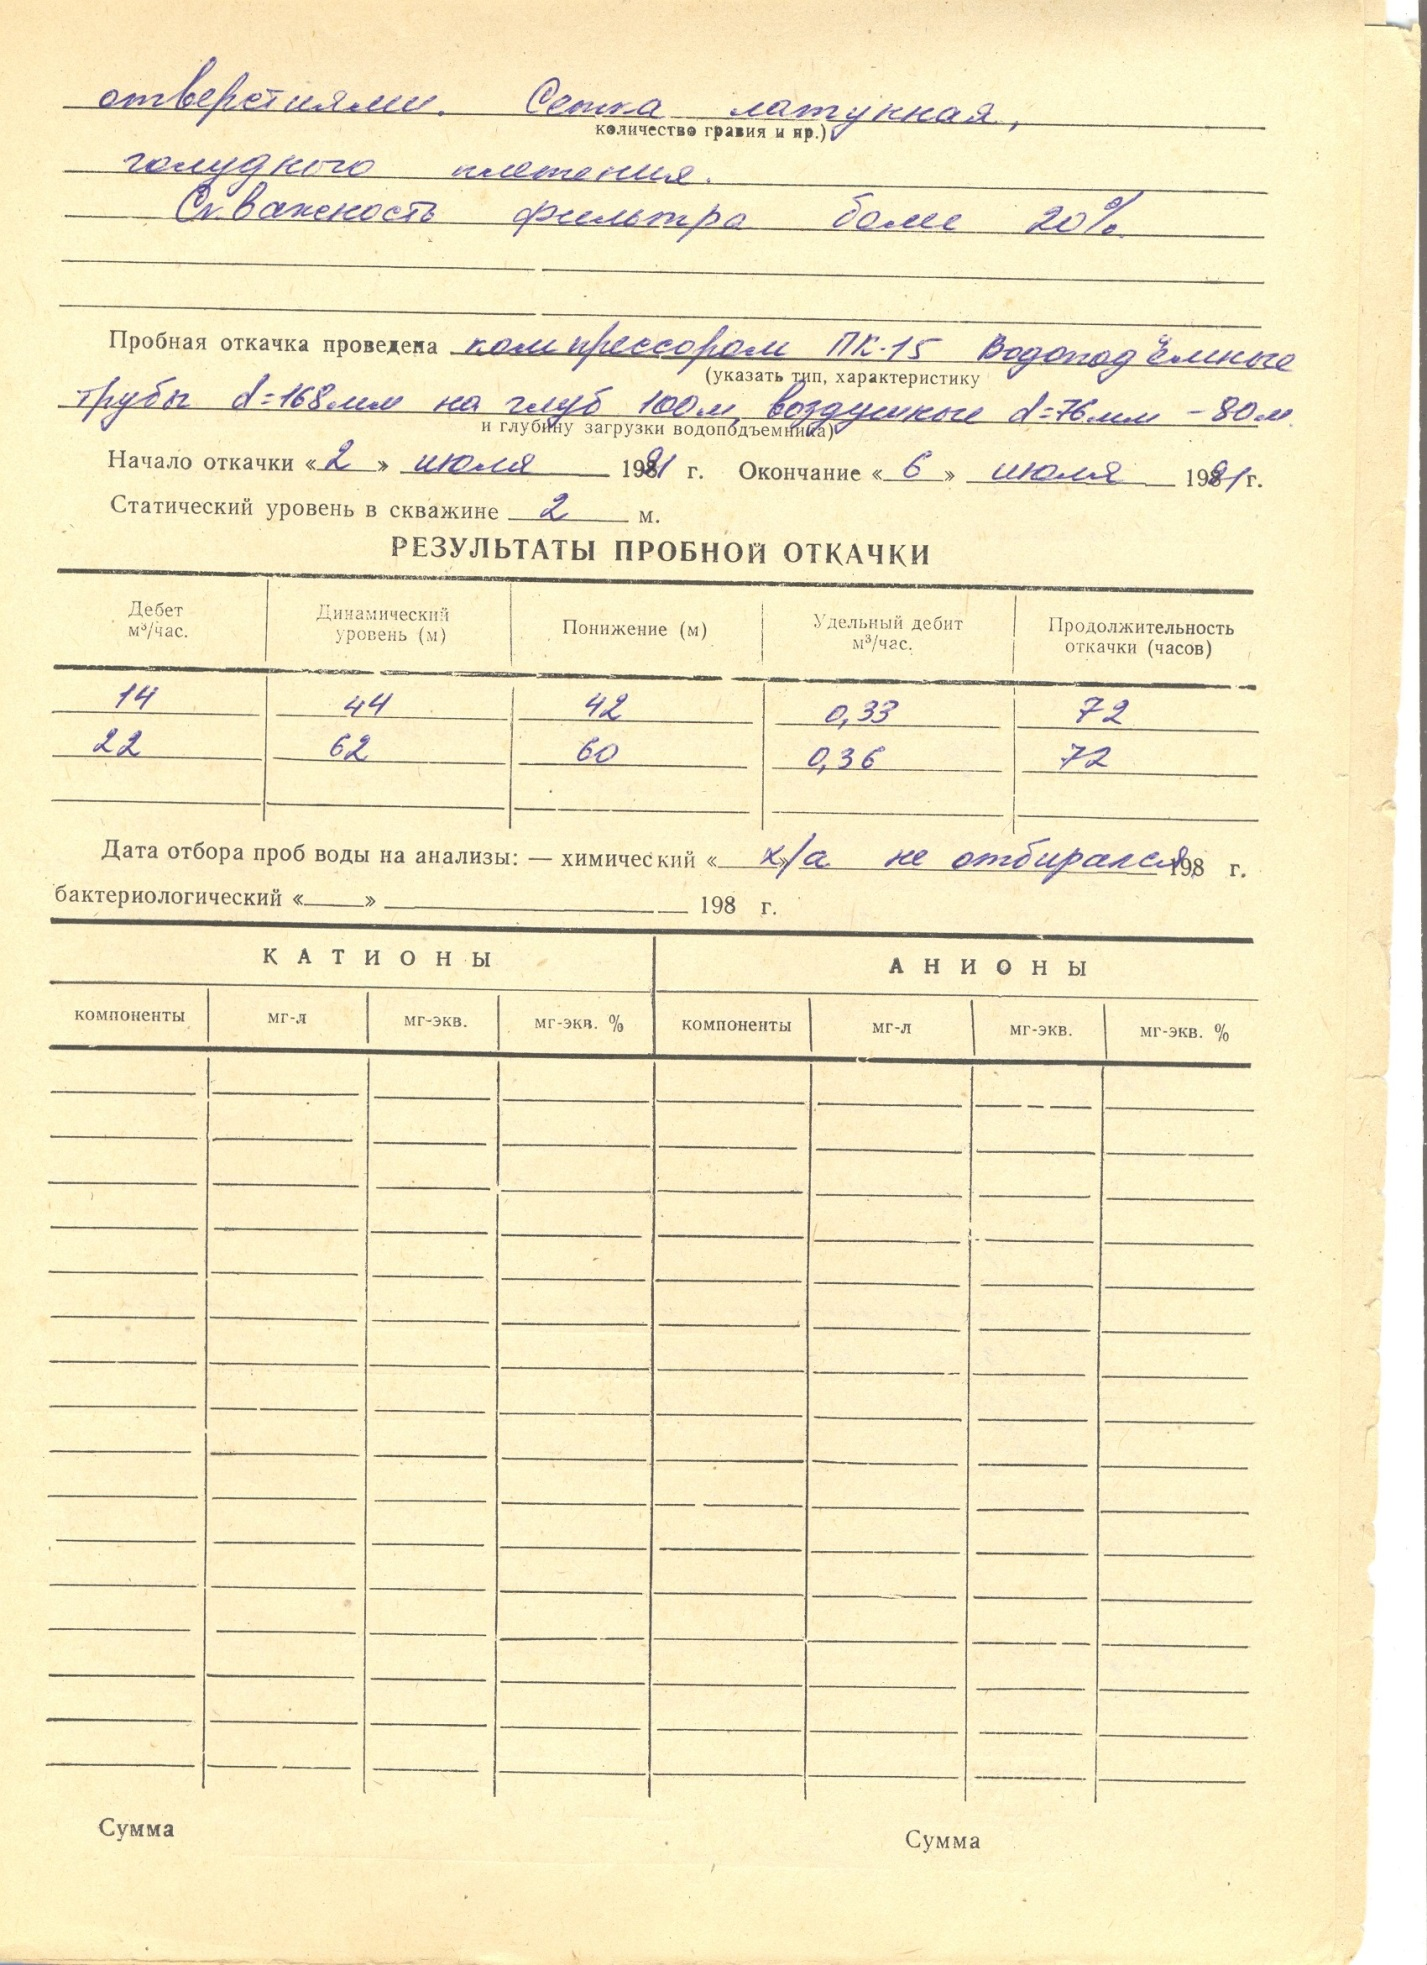 отверстиями. Сетка латунная,
количество гравия и пр.)
галунного плетения.
Скважность фильтра более 20%.
Пробная откачка проведена компрессором ПК-15 Водоподъёмные
(указать тип, характеристику
трубы d=168мм на глуб 100м, воздушные d=76мм -80м.
и глубину загрузки водоподъемника)
Начало откачки «2» июля 1991 г. Окончание «6» июля 1991 г.
Статический уровень в скважине 2 м.
РЕЗУЛЬТАТЫ ПРОБНОЙ ОТКАЧКИ
Дебет Динамический Понижение (м) Удельный дебит Продолжительность
м³/час. уровень (м) м³/час. откачки (часов)
14 44 42 0,33 72
22 62 60 0,36 72
Дата отбора проб воды на анализы: — химический « » х/а не отбирался, 198 г.
бактериологический « » 198 г.
КАТИОНЫ АНИОНЫ
компоненты мг-л мг-экв. мг-экв. % компоненты мг-л мг-экв. мг-экв. %
Сумма Сумма